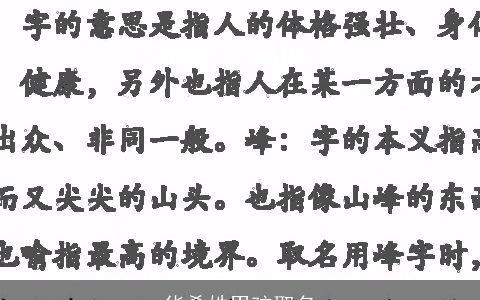 字的意思是指人的体格强壮、身
健康，另外也指人在某一方面的
出众、非同一般。峰：字的本义指
而又尖尖的山头。也指像山峰的东
也喻指最高的境界。取名用峰字时，